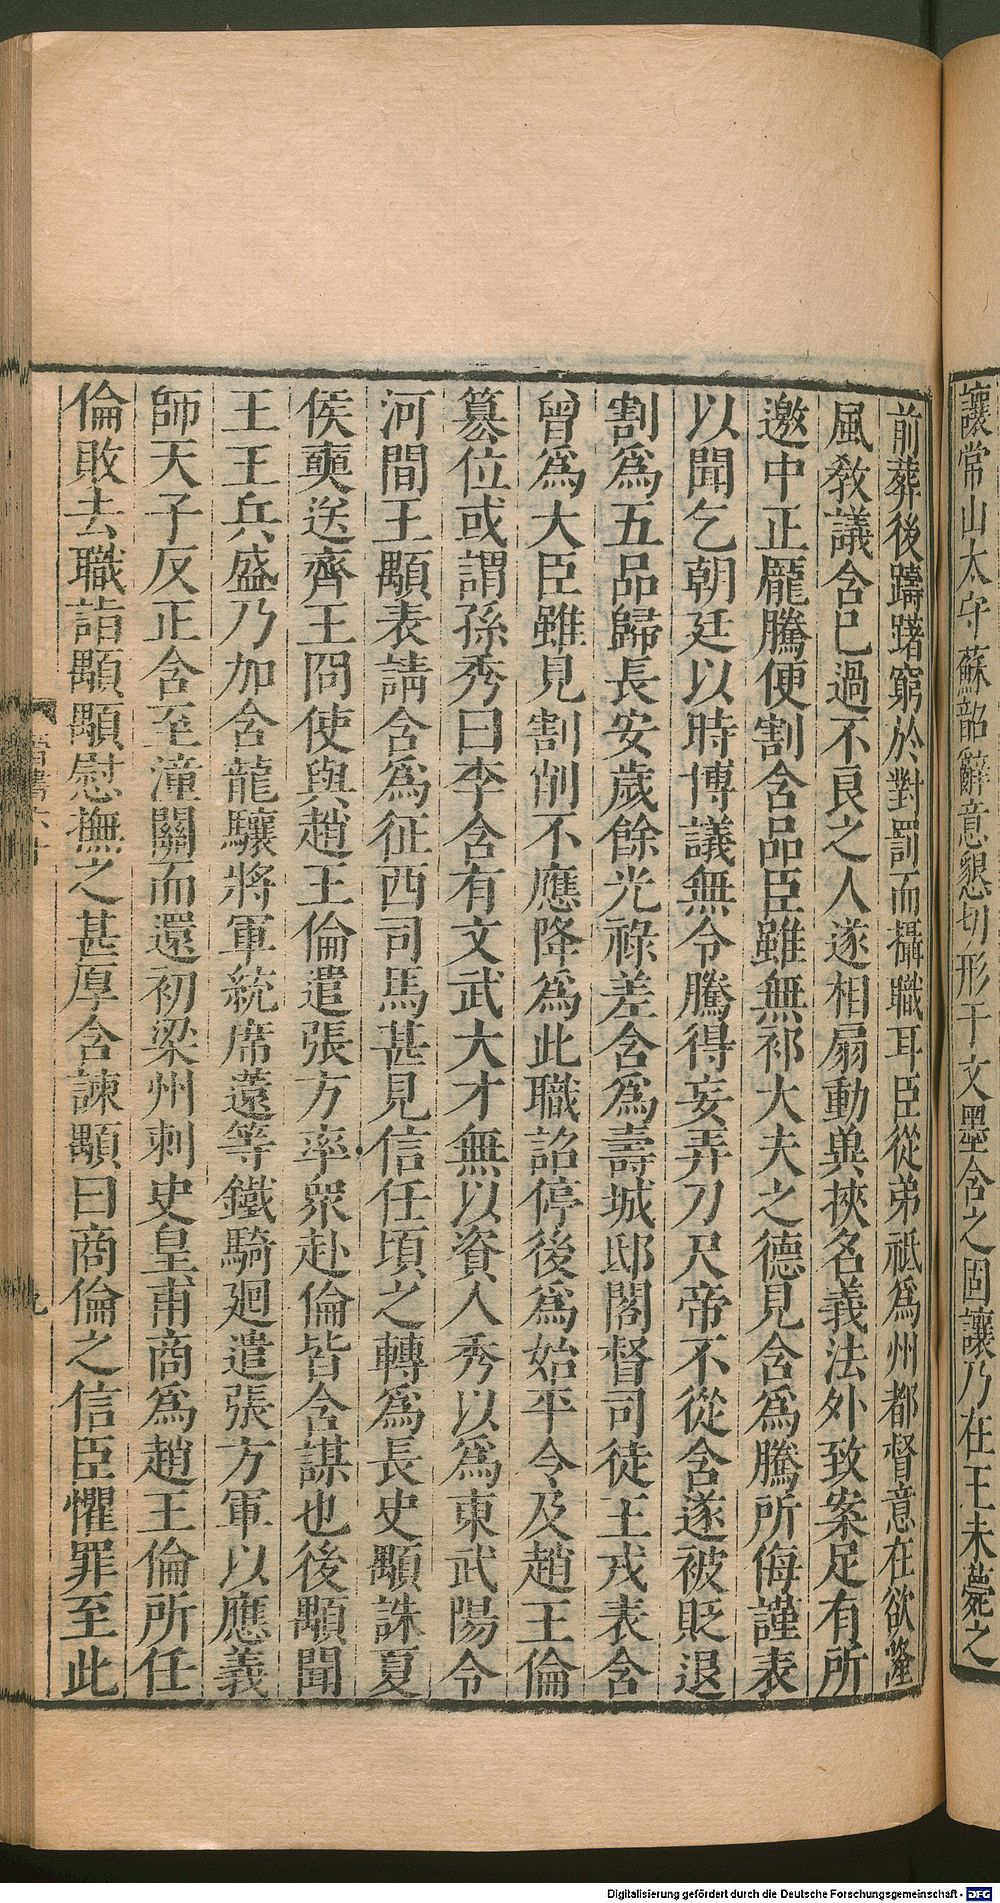 讓常山太守蘇韶辭意懇切形于文墨含之固讓乃在王未薨之
前葬後躊躇窮於對罰而攝職耳臣從弟祗為州都督意在欲隆
風敎議含已過不良之人遂相扇動兾挾名義法外致案足有所
邀中正龐騰便割含品臣雖無祁大夫之德見含為騰所侮謹表
以聞乞朝廷以時博議無令騰得妄弄刀尺帝不從含遂被貶退
割為五品歸長安歲餘光祿差含為壽城邸閣督司徒王戎表含
曾為大臣雖見割削不應降為此職詔停後為始平令及趙王倫
篡位或謂孫秀曰李含有文武大才無以資人秀以為東武陽令
河間王顒表請含為征西司馬甚見信任頃之轉為長史顒誅夏
侯奭送齊王冏使與趙王倫遣張方率衆赴倫皆含謀也後顒聞
王王兵盛乃加含龍驤將軍統席薳等鐵騎廻遣張方軍以應義
師天子反正含至潼關而還初梁州刺史皇甫商為趙王倫所任
倫敗去職詣顒顒慰撫之甚厚含諫顒曰商倫之信臣懼罪至此
Digitalisierung gefördert durch die Deutsche Forschungsgemeinschaft - DFG